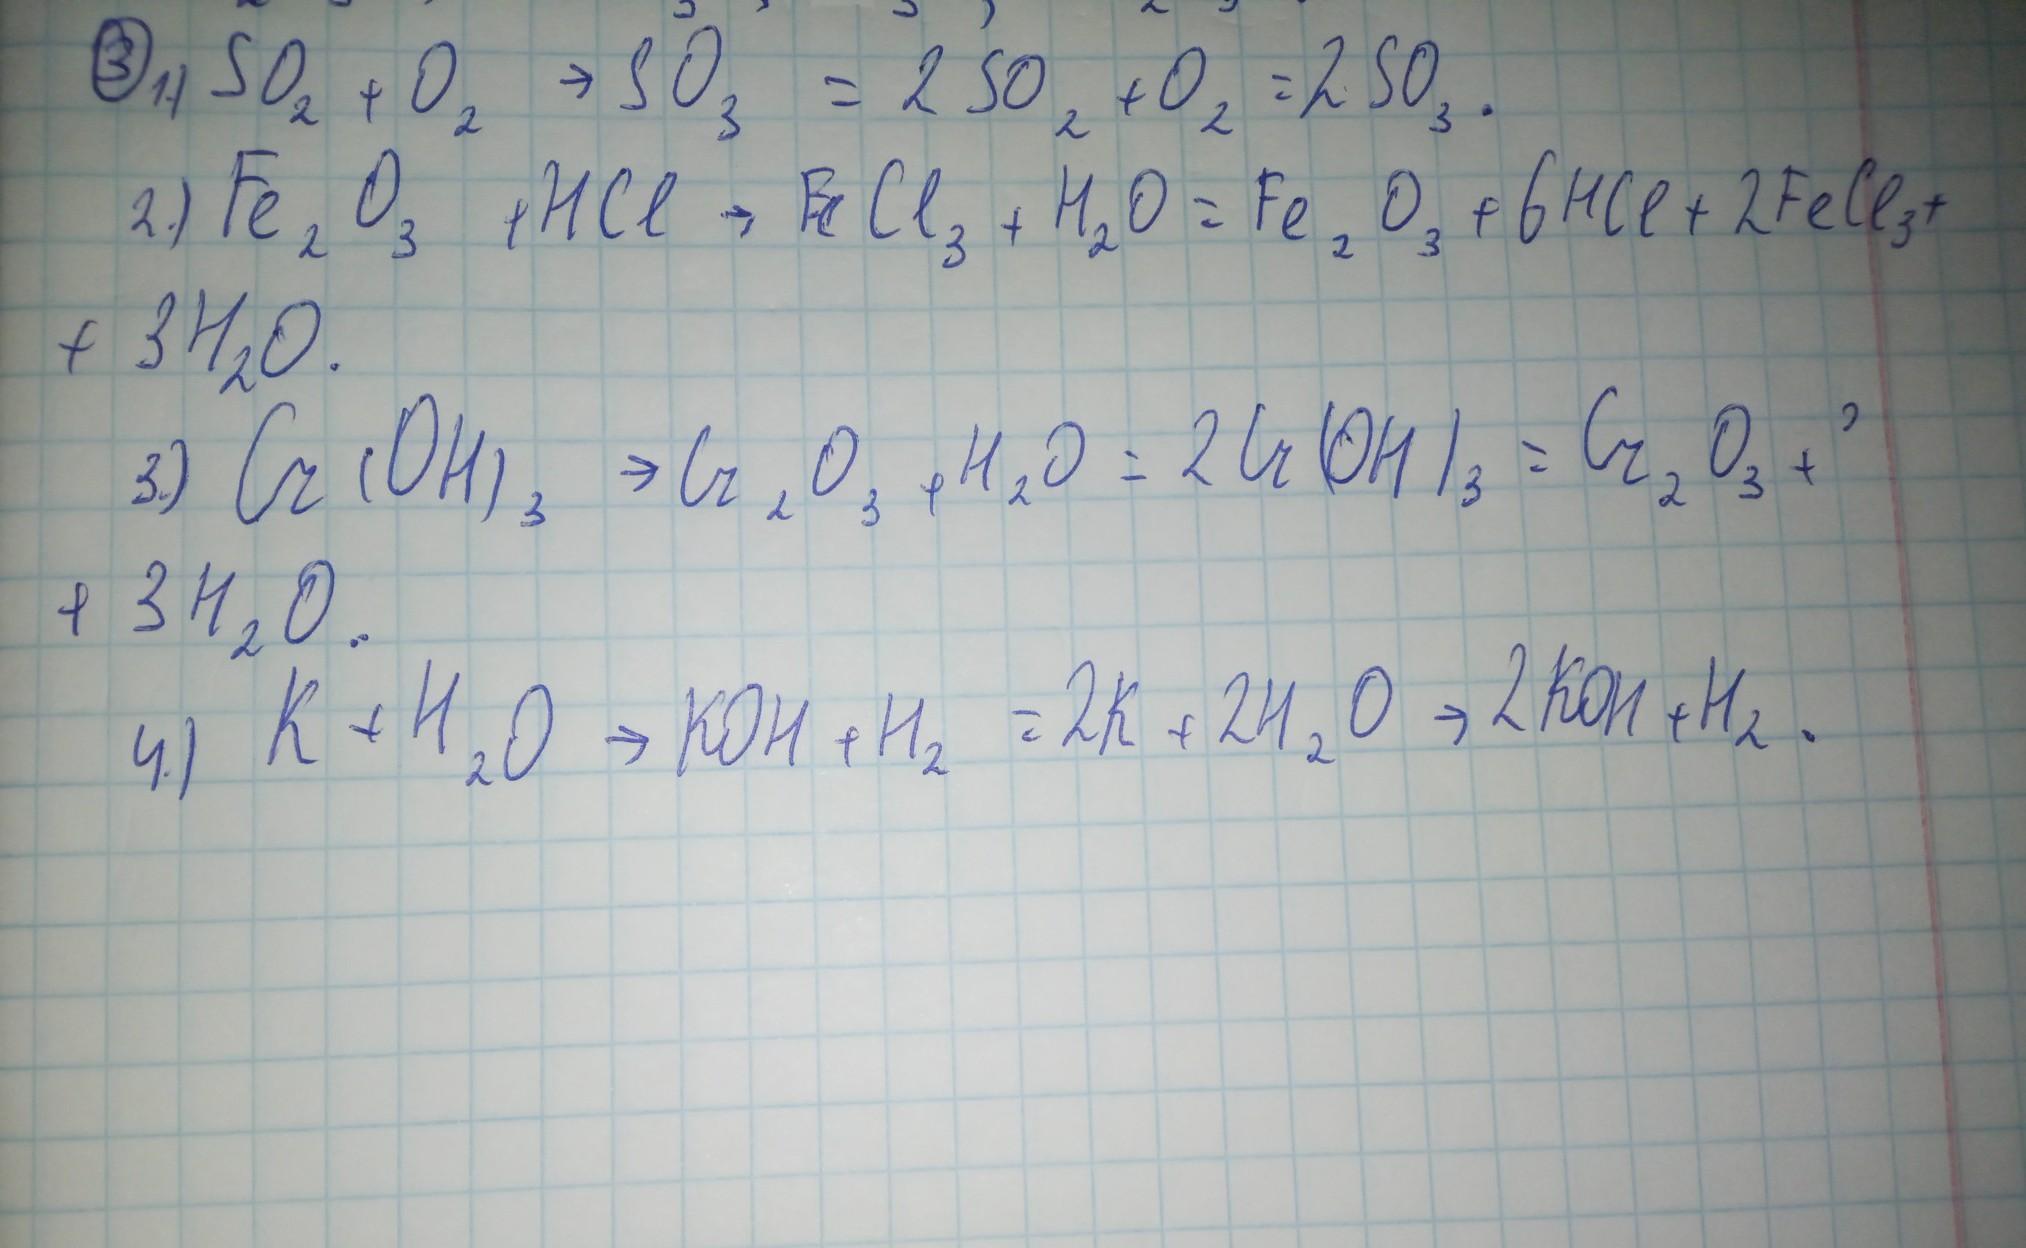 ③ 1.) SO₂ + O₂ → SO₃ = 2SO₂ + O₂ = 2SO₃.
2.) Fe₂O₃ + HCl → FeCl₃ + H₂O = Fe₂O₃ + 6HCl + 2FeCl₃ +
+ 3H₂O.
3.) Cr(OH)₃ → Cr₂O₃ + H₂O = 2Cr(OH)₃ = Cr₂O₃ +
+ 3H₂O.
4.) K + H₂O → KOH + H₂ = 2K + 2H₂O → 2KOH + H₂.